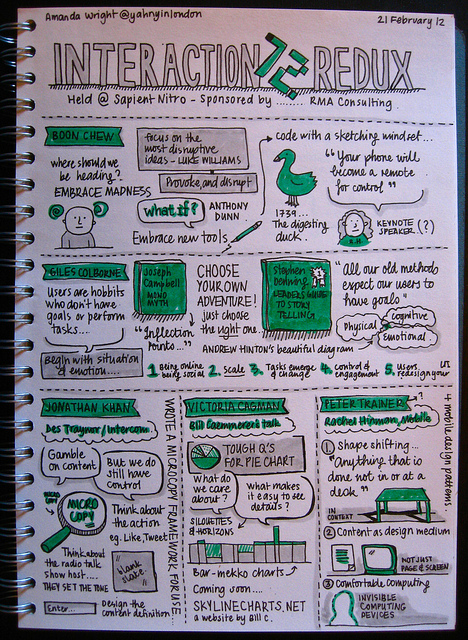 Amanda Wright @yahnyinlondon
21 February 12
INTERACTION 12 REDUX
Held @ Sapient Nitro - Sponsored by ........ RMA Consulting
BOON CHEW
where should we
be heading?
EMBRACE MADNESS
focus on the
most disruptive
ideas - LUKE WILLIAMS
Provoke, and disrupt
what if?
ANTHONY
DUNN.
Embrace new tools
code with a sketching mindset...
1739...
The digesting
duck.
"Your phone will
become a remote
for control"
KEYNOTE
SPEAKER (?)
GILES COLBORNE
Users are hobbits
who don't have
goals or perform
tasks...
Begin with situation
& emotion....
Joseph
Campbell
MONO
MYTH
"Inflection
Points..."
CHOOSE
YOUR OWN
ADVENTURE!
just choose
the right one.
Stephen
Denning
LEADERS GUIDE
TO STORY
TELLING
"All our old methods
expect our users to
have goals"
Physical
Cognitive
Emotional
ANDREW HINTON'S beautiful diagram
1 Being online
being social
2. scale
3. Tasks emerge
& change
4. control &
engagement
5. Users
redesign your
UI
JONATHAN KHAN
Des Traynor / Intercom..
Gamble
on content
But we do
still have
control
MICRO
COPY
MICRO
COPY
Think about
the action
eg. Like, Tweet
Think about
the radio talk
show host....
THEY SET THE TONE
blank
slate.
Enter...
Design the
content definition
WRITE A MICROCOPY FRAMEWORK FOR USE...
VICTORIA CAGMAN
Bill Caemmerer's talk
TOUGH Q'S
FOR PIE CHART
What do
we care
about?
what makes
it easy to see
details?
SILOUETTES
& HORIZONS
Bar-mekko charts
Coming soon....
SKYLINECHARTS.NET
a website by Bill C.
PETER TRAINER
?
Rachel Hinman, Mobile
4 mobile design patterns
1 Shape shifting...
"Anything that is
done not in or at a
desk"
IN
CONTEXT
2 Content as design medium
NOT JUST
PAGE & SCREEN
3 Comfortable computing
INVISIBLE
COMPUTING
DEVICES